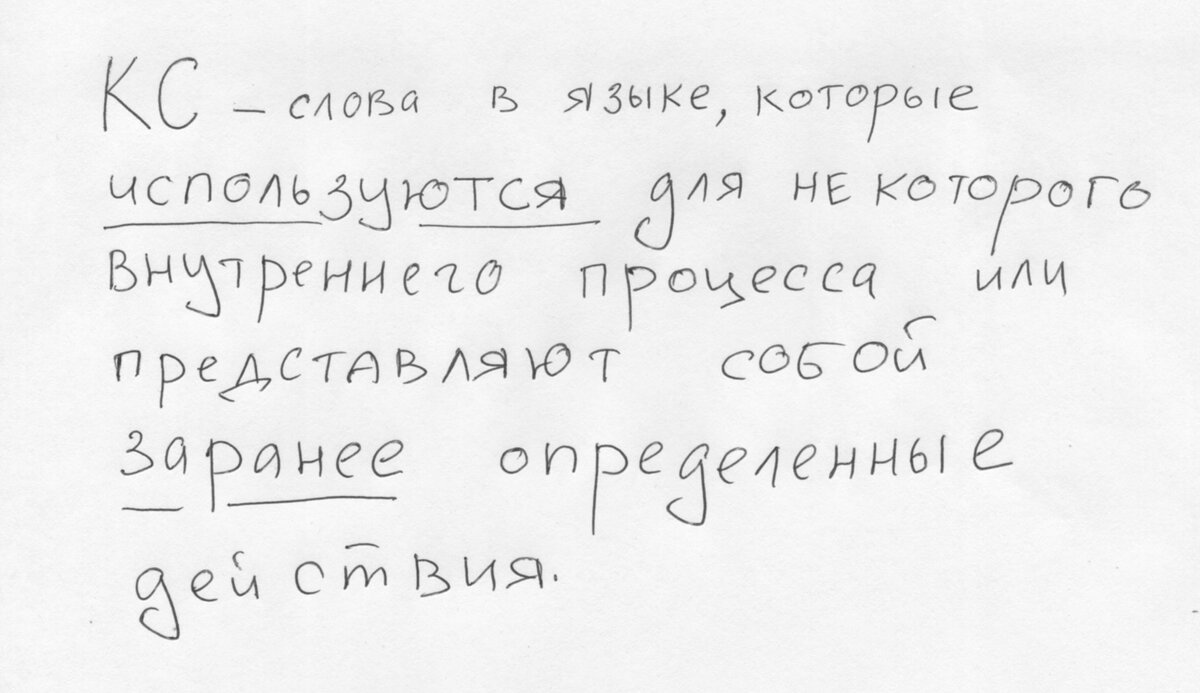 КС – слова в языке, которые
используются для некоторого
внутреннего процесса или
представляют собой
заранее определенные
действия.